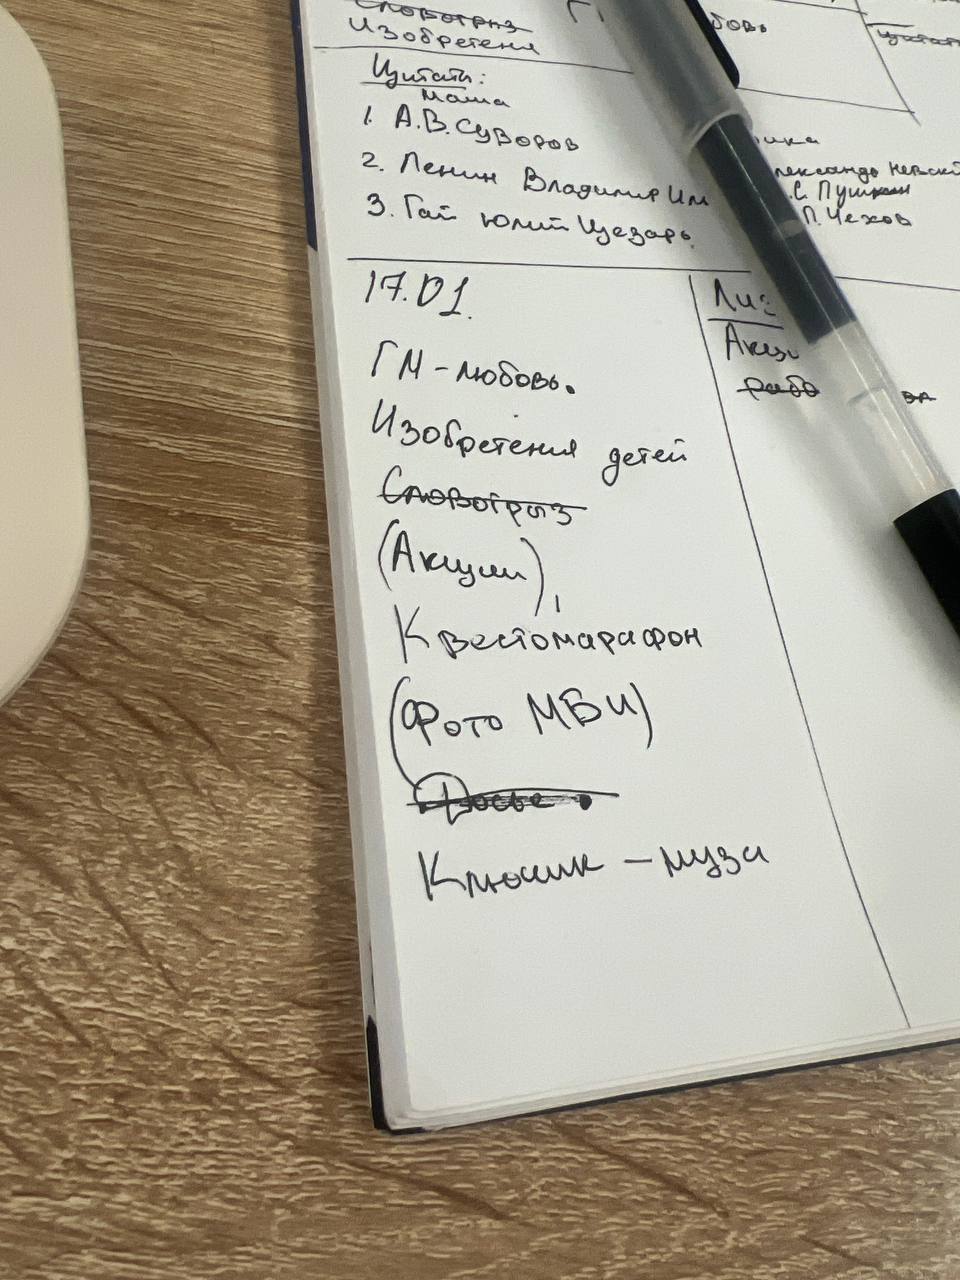 Словотрыз
Изобретения
бовь
цитаты
Цитаты:
Маша
1. А.В. Суворов
2. Ленин Владимир Ил
3. Гай Юлий Цезарь.
ика
лександр Невский
.С. Пушкин
П. Чехов
17.01.
ГМ - любовь.
Изобретения детей
Словотрыз
(Акции),
Квестомарафон
(Фото МБИ)
Досье
Клюшик - муза
Лиз
Акци
рабо